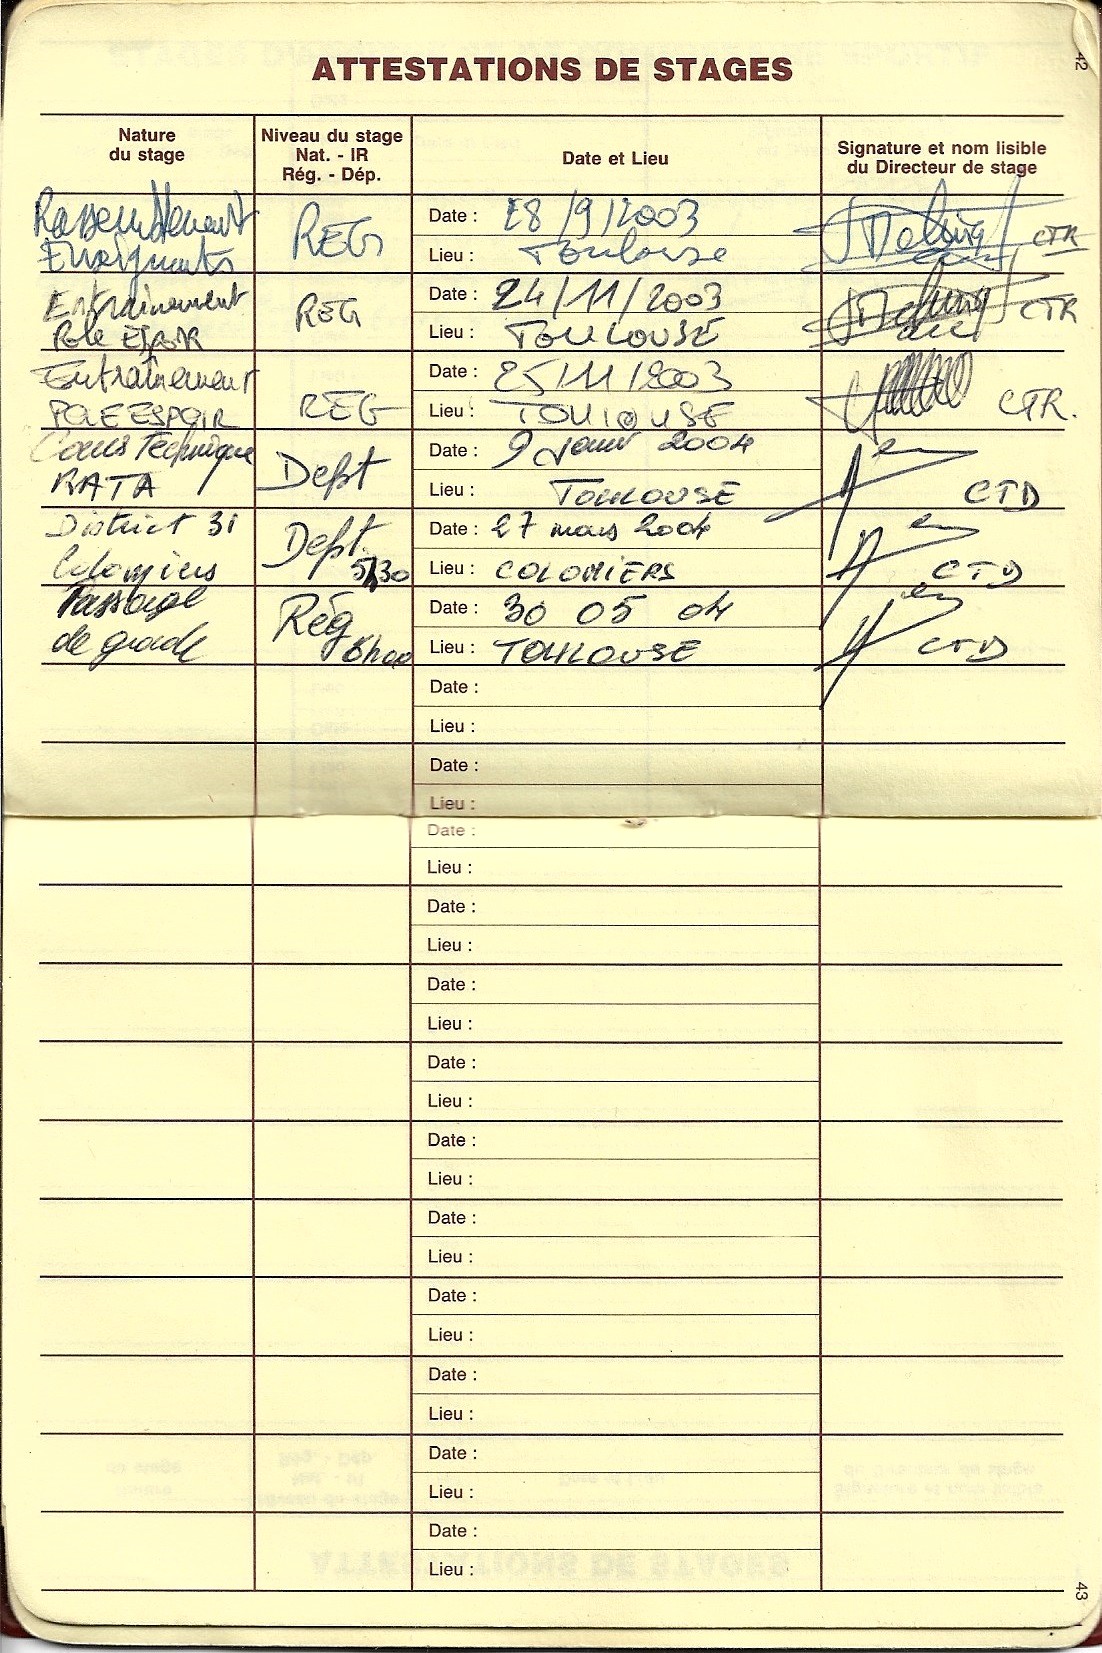 42
ATTESTATIONS DE STAGES
Nature
du stage
Niveau du stage
Nat. - IR
Rég. - Dép.
Date et Lieu
Signature et nom lisible
du Directeur de stage
Rassemblement
Enseignants
REG
Date : 28/9/2003
Lieu : Toulouse
CTR
Entraînement
Pole ESPOIR
REG
Date : 24/11/2003
Lieu : TOULOUSE
CTR
Entraînement
POLE ESPOIR
REG
Date : 25/11/2003
Lieu : TOULOUSE
CTR.
Cours Technique
KATA
Dept
Date : 9 janv 2004
Lieu : TOULOUSE
CTD
District 31
Colomiers
Dept
5h30
Date : 27 mars 2004
Lieu : COLOMIERS
CTD
Passage
de grade
Rég
6h00
Date : 30 05 04
Lieu : TOULOUSE
CTD
Date :
Lieu :
Date :
Lieu :
Date :
Lieu :
Date :
Lieu :
Date :
Lieu :
Date :
Lieu :
Date :
Lieu :
Date :
Lieu :
Date :
Lieu :
Date :
Lieu :
Date :
Lieu :
Date :
Lieu :
43